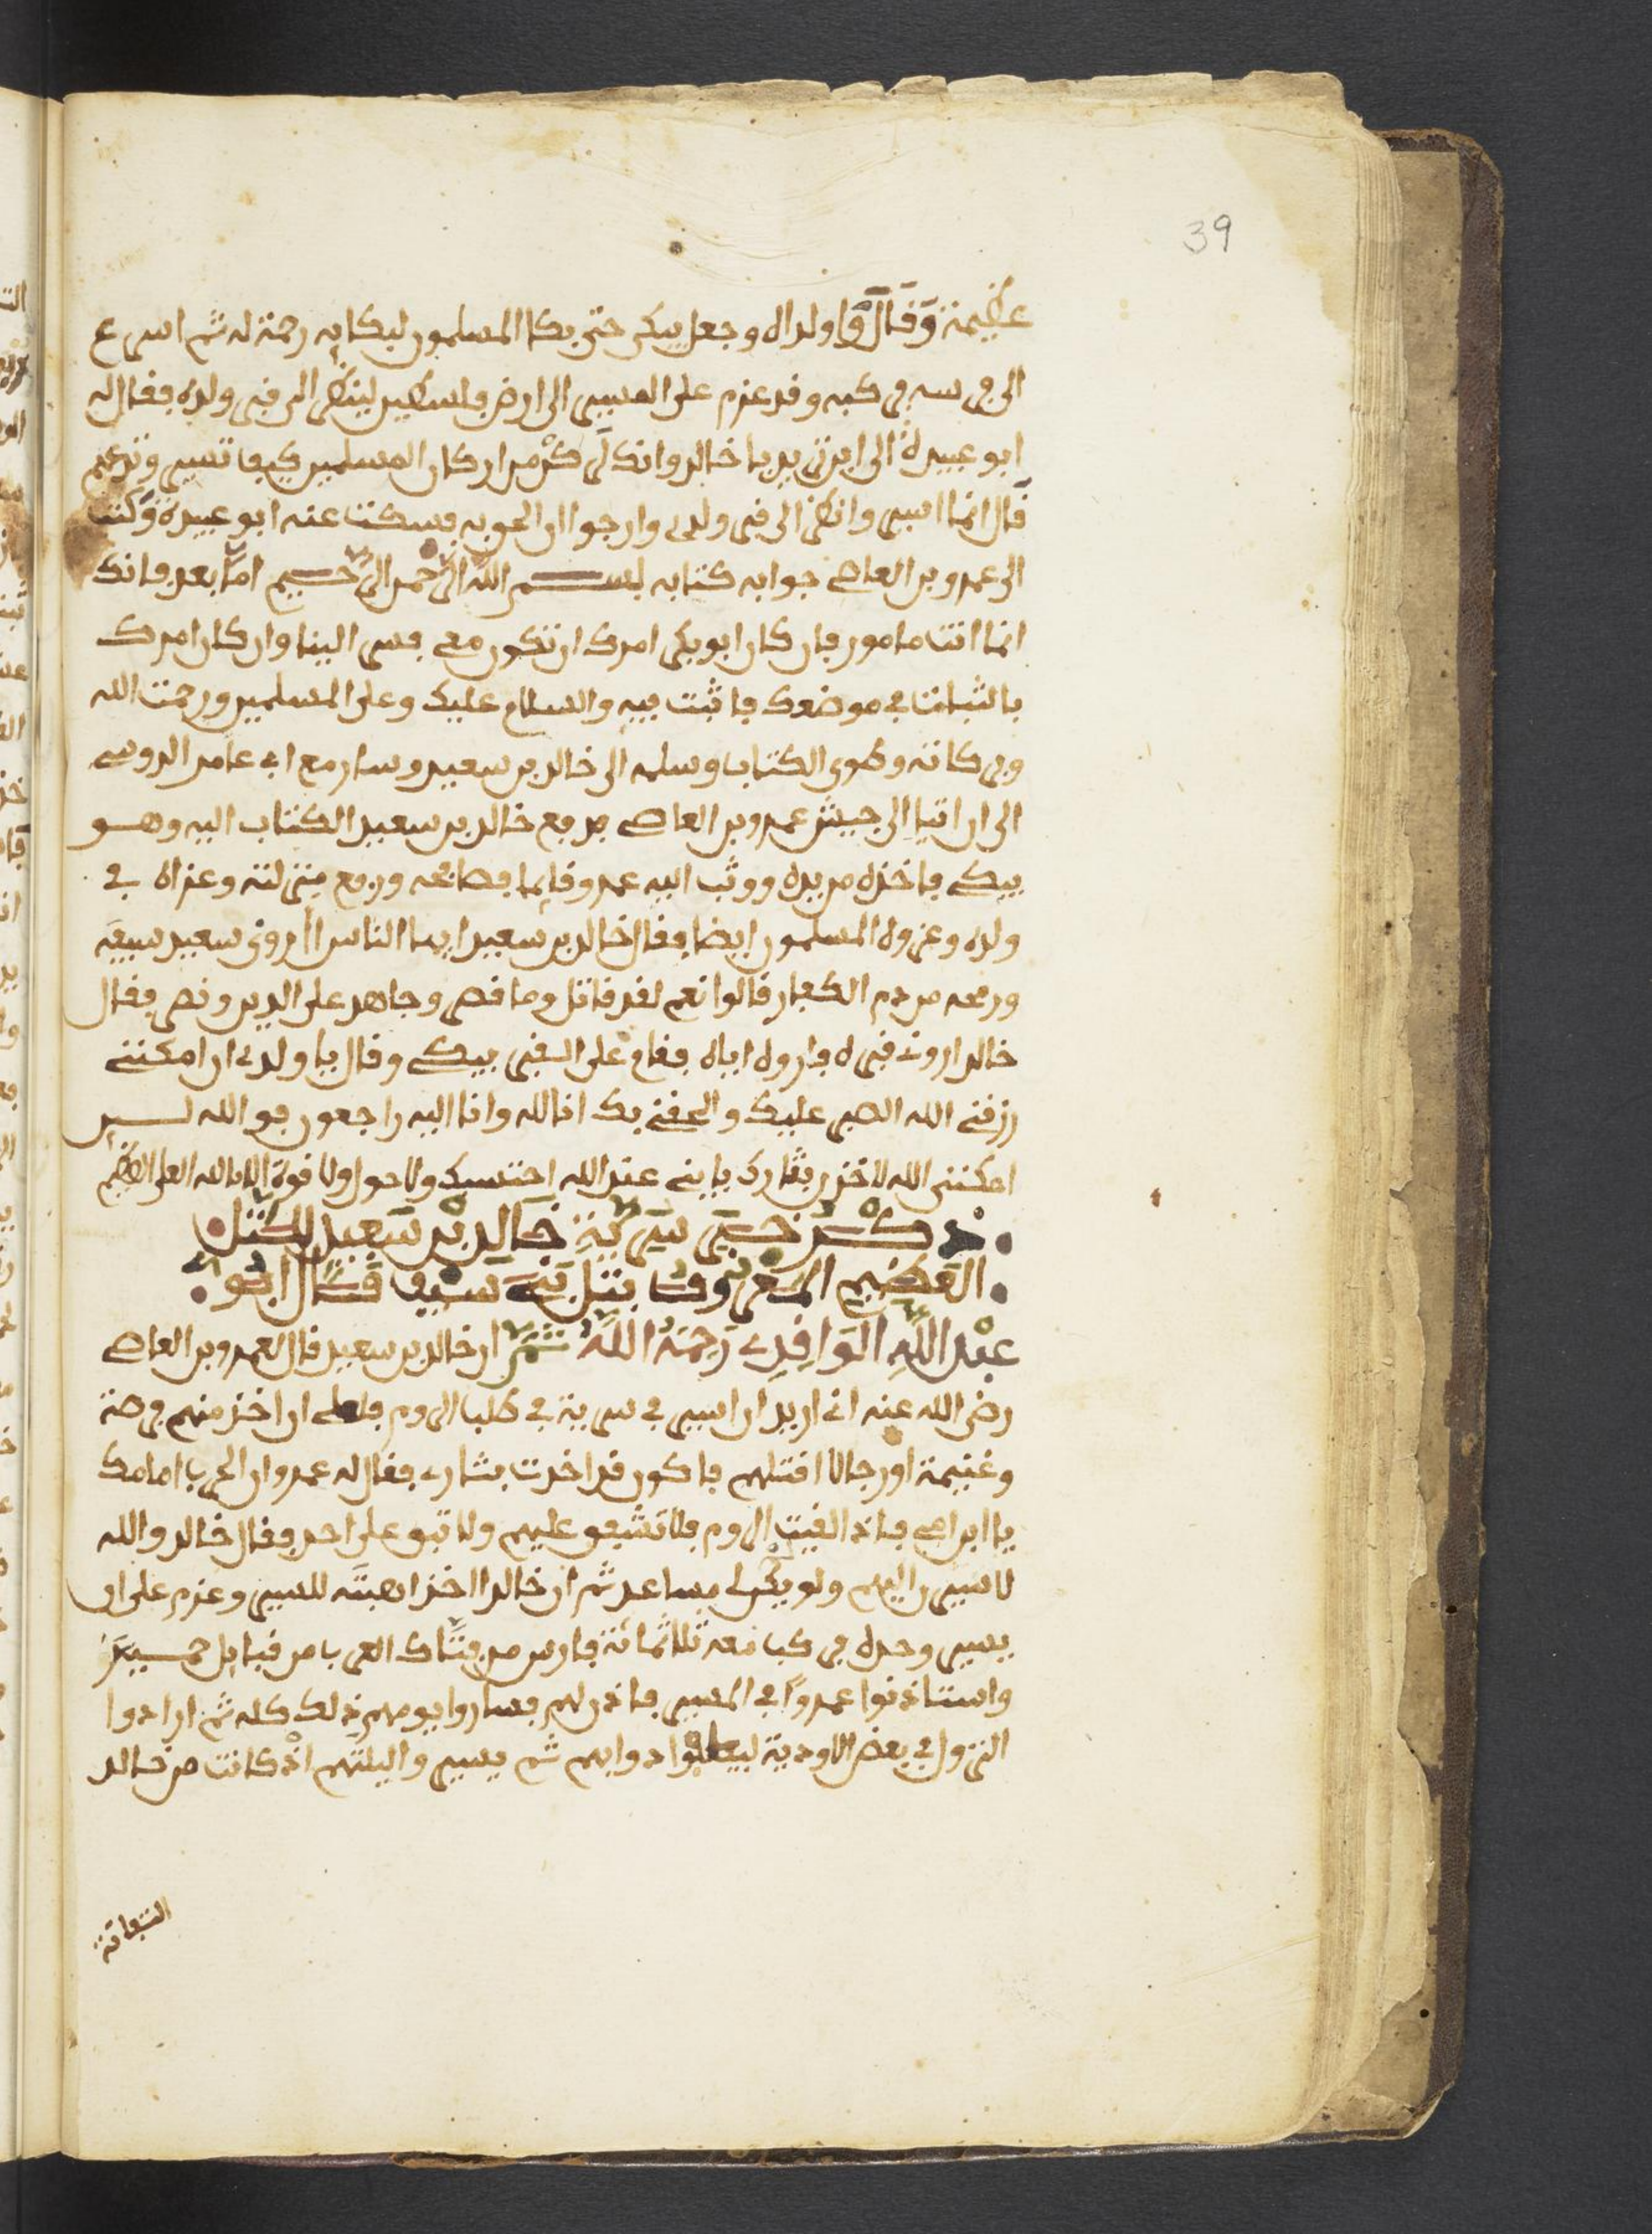 39
عظيمة وقال وا ولداه وجعل يبكي حتى بكا المسلمون لبكايه رحمة له ثم اسرع
الى فرسه فركبه وقد عزم على المسير الى ارض فلسطين لينظر الى قبر ولده فقال له
ابو عبيدة الى اين تريد يا خالد وانك ركن من اركان المسلمين كيف تسير وتدعهم
قال انما اسير وانظر الى قبر ولدي وارجوا ان الحق به فسكت عنه ابو عبيدة وكتب
الى عمرو بن العاصي جواب كتابه بسم الله الرحمن الرحيم اما بعد فانك
انما انت مامور فان كان ابو بكر امرك ان تكون معي فسر الينا وان كان امرك
بالثبات في موضعك فاثبت فيه والسلام عليك وعلى المسلمين ورحمت الله
وبركاته وطوى الكتاب وسلمه الى خالد بن سعيد وسار مع ابي عامر الدوسي
الى ان اتيا الى جيش عمرو بن العاصي فدفع خالد بن سعيد الكتاب اليه وهو
يبكي فاخذه من يده ووثب اليه عمرو قايما فصافحه ورفع منزلته وعزاه في
ولده وعزوه المسلمون ايضا فقال خالد بن سعيد ايها الناس اروى سعيد سيفه
ورمحه من دم الكفار قالوا نعم لقد قاتل وما قصر وجاهد على الدين ونصر فقال
خالد اروني قبره فاروه اياه فقام على القبر يبكي وقال يا ولدي ان امكنني
رزقني الله الصبر عليك والحقني بك انا لله وانا اليه راجعون فو الله لين
امكنني الله لاخذن بثارك يا بني عند الله احتسبك ولا حول ولا قوة الا بالله العلي العظيم
ذكر خبر سرية خالد بن سعيد للكتل
العظيم المعروف بتل بني سيف قال ابو
عبد الله الواقدي رحمه الله ثم ان خالد بن سعيد قال لعمرو بن العاصي
رضي الله عنه اني اريد ان اسير في سرية في طلب الروم فلعلي ان اخذ منهم فرصة
وغنيمة او رجالا اقتلهم فاكون قد اخذت بثاري فقال له عمرو ان الحرب امامك
يا ابن امي فاذا لقيت الروم فلا تشفق عليهم ولا تبق على احد فقال خالد والله
لاسيرن اليهم ولو بغير مساعد ثم ان خالدا اخذ اهبته للمسير وعزم على ان
يسير وحده فركب معه ثلاثمائة فارس من فتاك العرب من قبايل حمير
واستاذنوا عمروا في المسير فاذن لهم فساروا يومهم ذلك كله ثم ارادوا
النزول في بعض الاودية ليعلفوا دوابهم ثم يسير وا ليلتهم اذ كانت من خالد
التفاتة